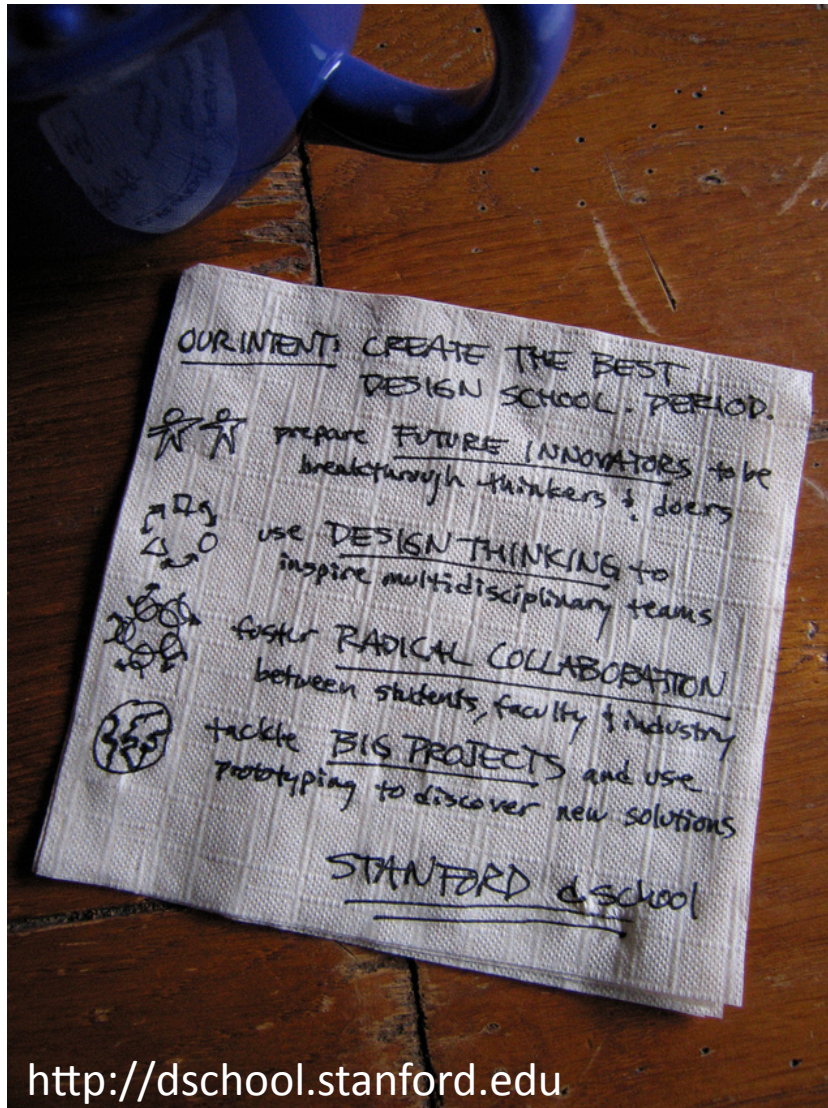 OUR INTENT: CREATE THE BEST
DESIGN SCHOOL. PERIOD.
prepare FUTURE INNOVATORS to be
breakthrough thinkers & doers
use DESIGN THINKING to
inspire multidisciplinary teams
foster RADICAL COLLABORATION
between students, faculty & industry
tackle BIG PROJECTS and use
prototyping to discover new solutions
STANFORD d.school
http://dschool.stanford.edu